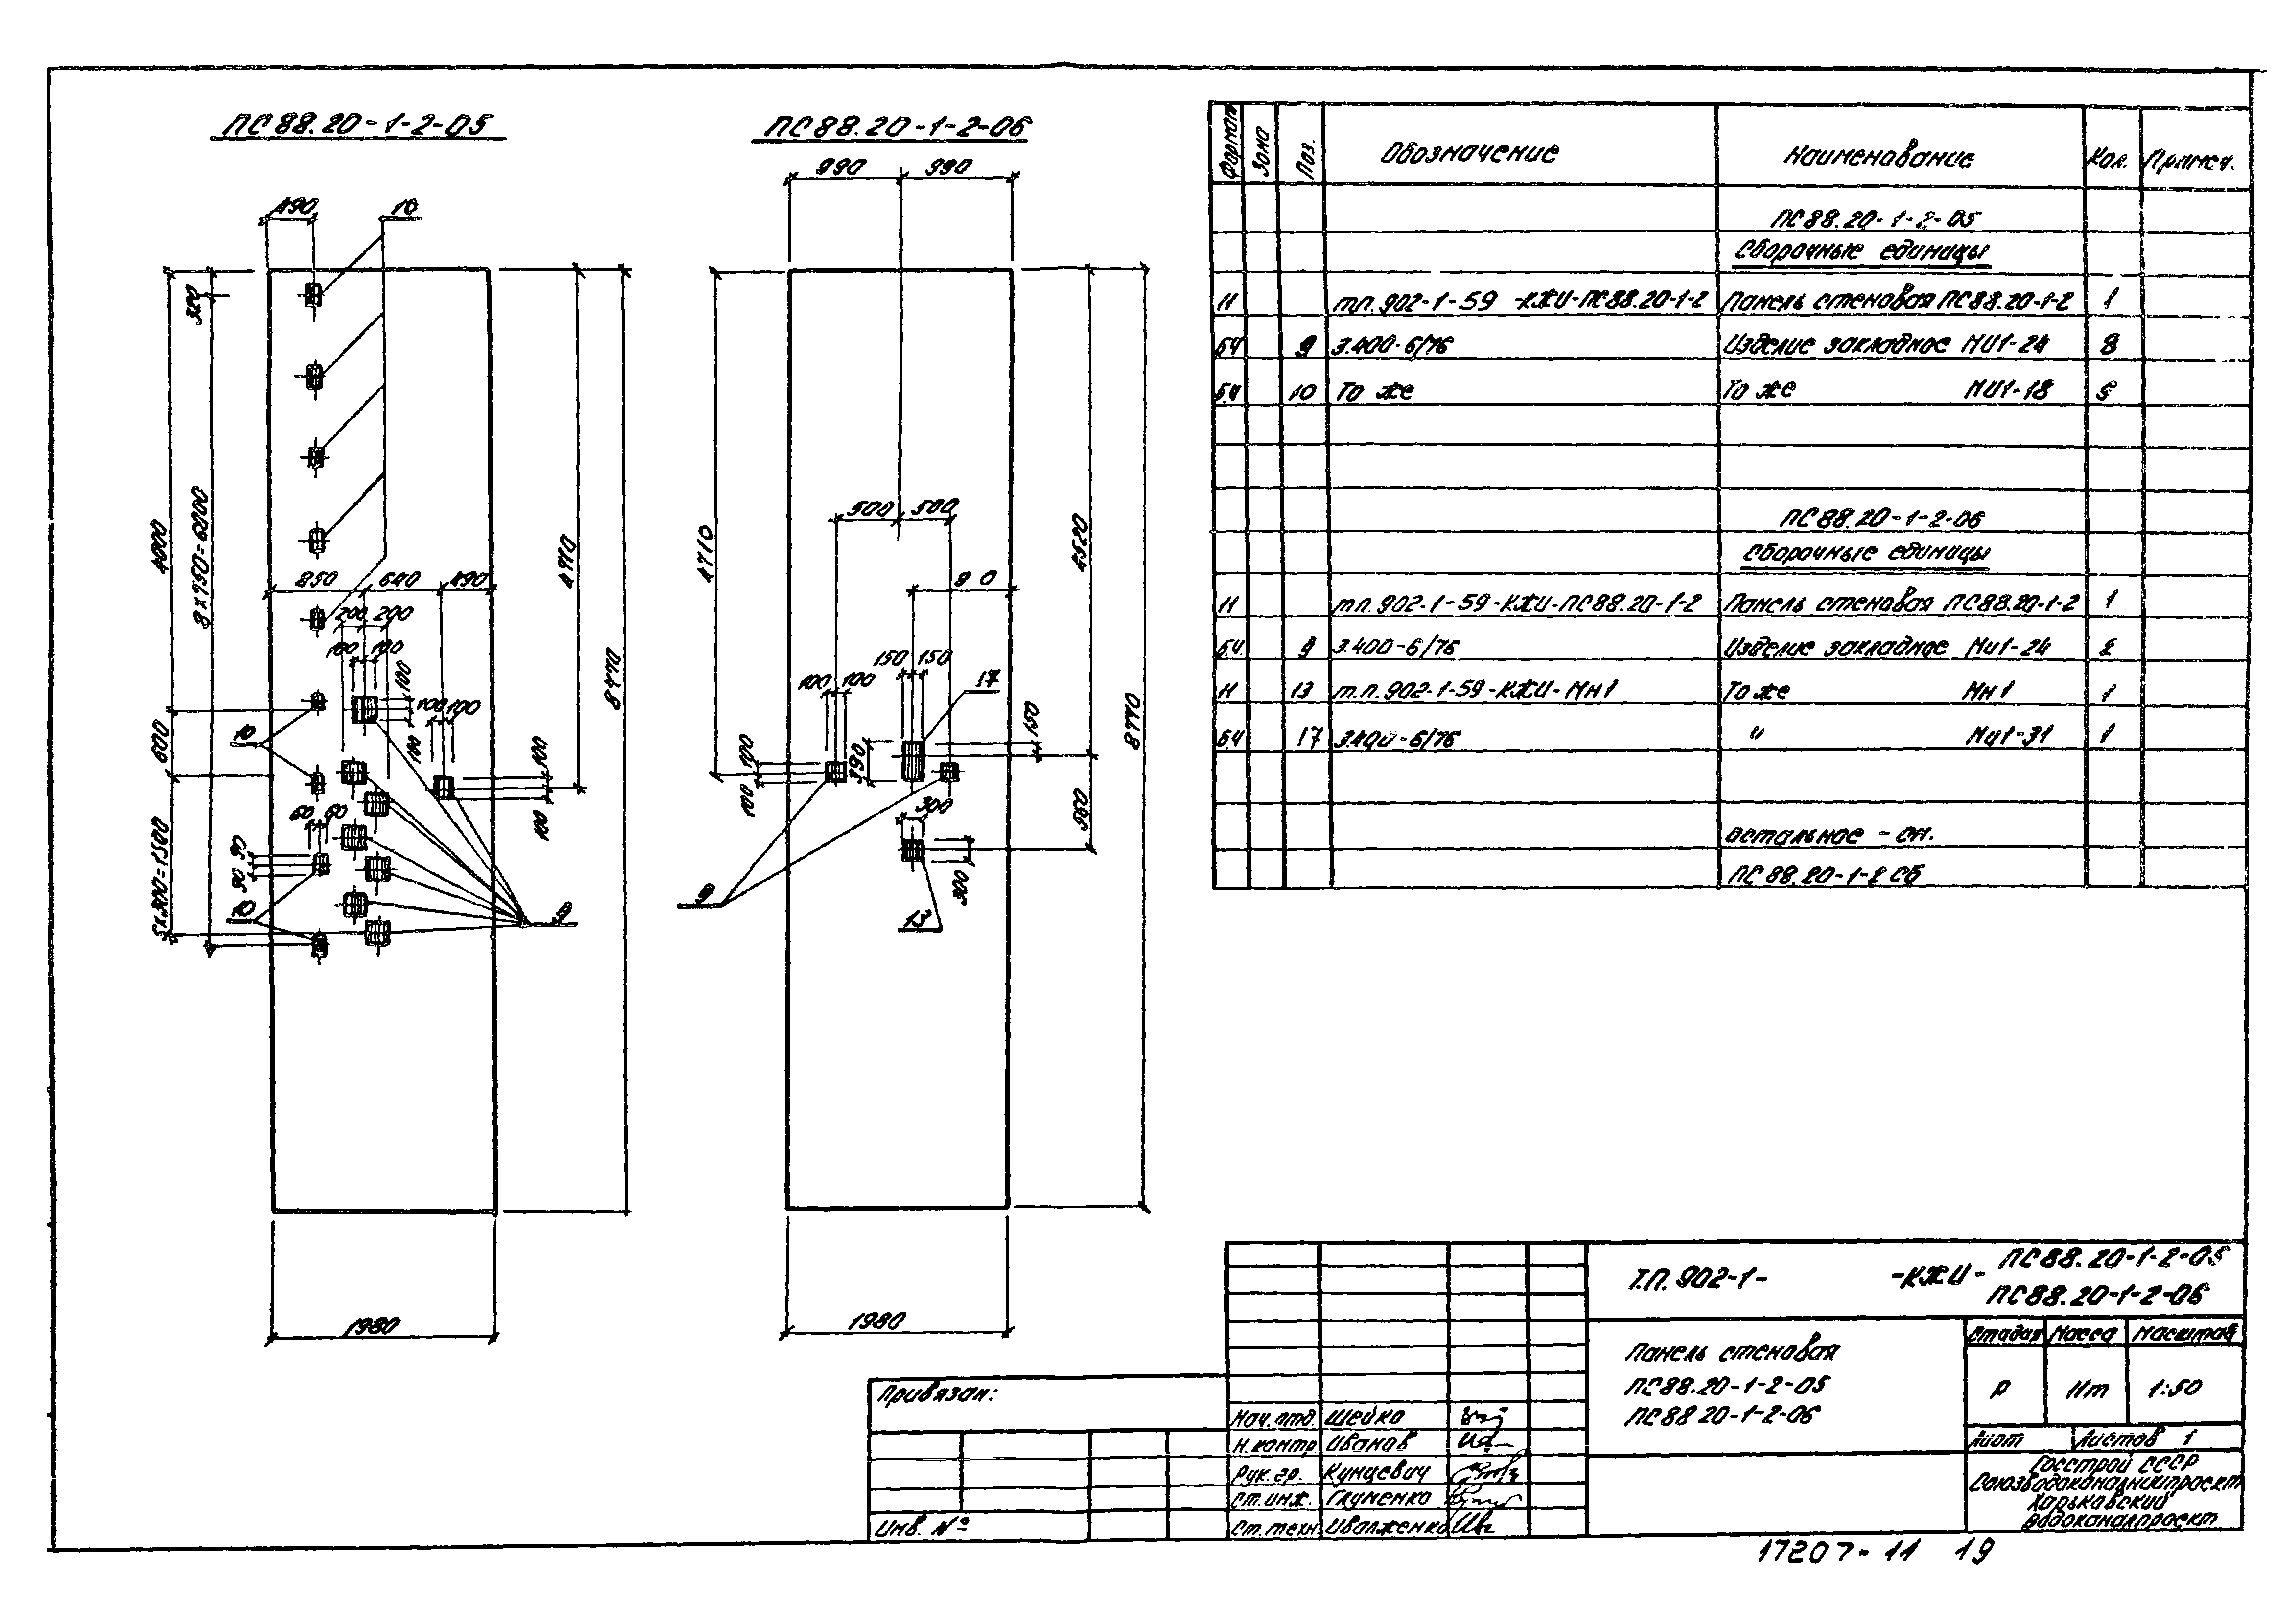 ПС88.20-1-2-05
490
10
320
4000
8×750=6000
600
5×300=1500
850 640 490
200 200
100 100
100
100 100
100
100
100
60 60
90 90
10
10
9
4710
8470
1980
ПС88.20-1-2-06
990 990
4710
500 500
4520
150 150
17
100 100
150
100
100
390
300
300
9
13
8470
1980
Формат Зона Поз. Обозначение Наименование Кол. Примеч.
ПС88.20-1-2-05
Сборочные единицы
11 т.п.902-1-59 -КЖИ-ПС88.20-1-2 Панель стеновая ПС88.20-1-2 1
БЧ 9 3.400-6/76 Изделие закладное МИ1-24 8
БЧ 10 То же То же МИ1-18
ПС88.20-1-2-06
Сборочные единицы
11 т.п.902-1-59-КЖИ-ПС88.20-1-2 Панель стеновая ПС88.20-1-2 1
БЧ 9 3.400-6/76 Изделие закладное Ми1-24 2
11 13 т.п.902-1-59-КЖИ-Мн1 То же Мн1 1
БЧ 17 3.400-6/76 " Ми1-31 1
Остальное - см.
ПС88.20-1-2 СБ
Т.П. 902-1- -КЖИ- ПС88.20-1-2-05
ПС88.20-1-2-06
Панель стеновая
ПС88.20-1-2-05
ПС88 20-1-2-06
Стадия Масса Масштаб
Р 11т 1:50
Лист Листов 1
Госстрой СССР
Союзводоканалниипроект
Харьковский
Водоканалпроект
Привязан:
Инв. №
Нач. отд. Шейко
Н. контр Иванов
Рук. гр. Кунцевич
Ст. инж. Глуменко
Ст. техн. Иваженко
17207-11 19